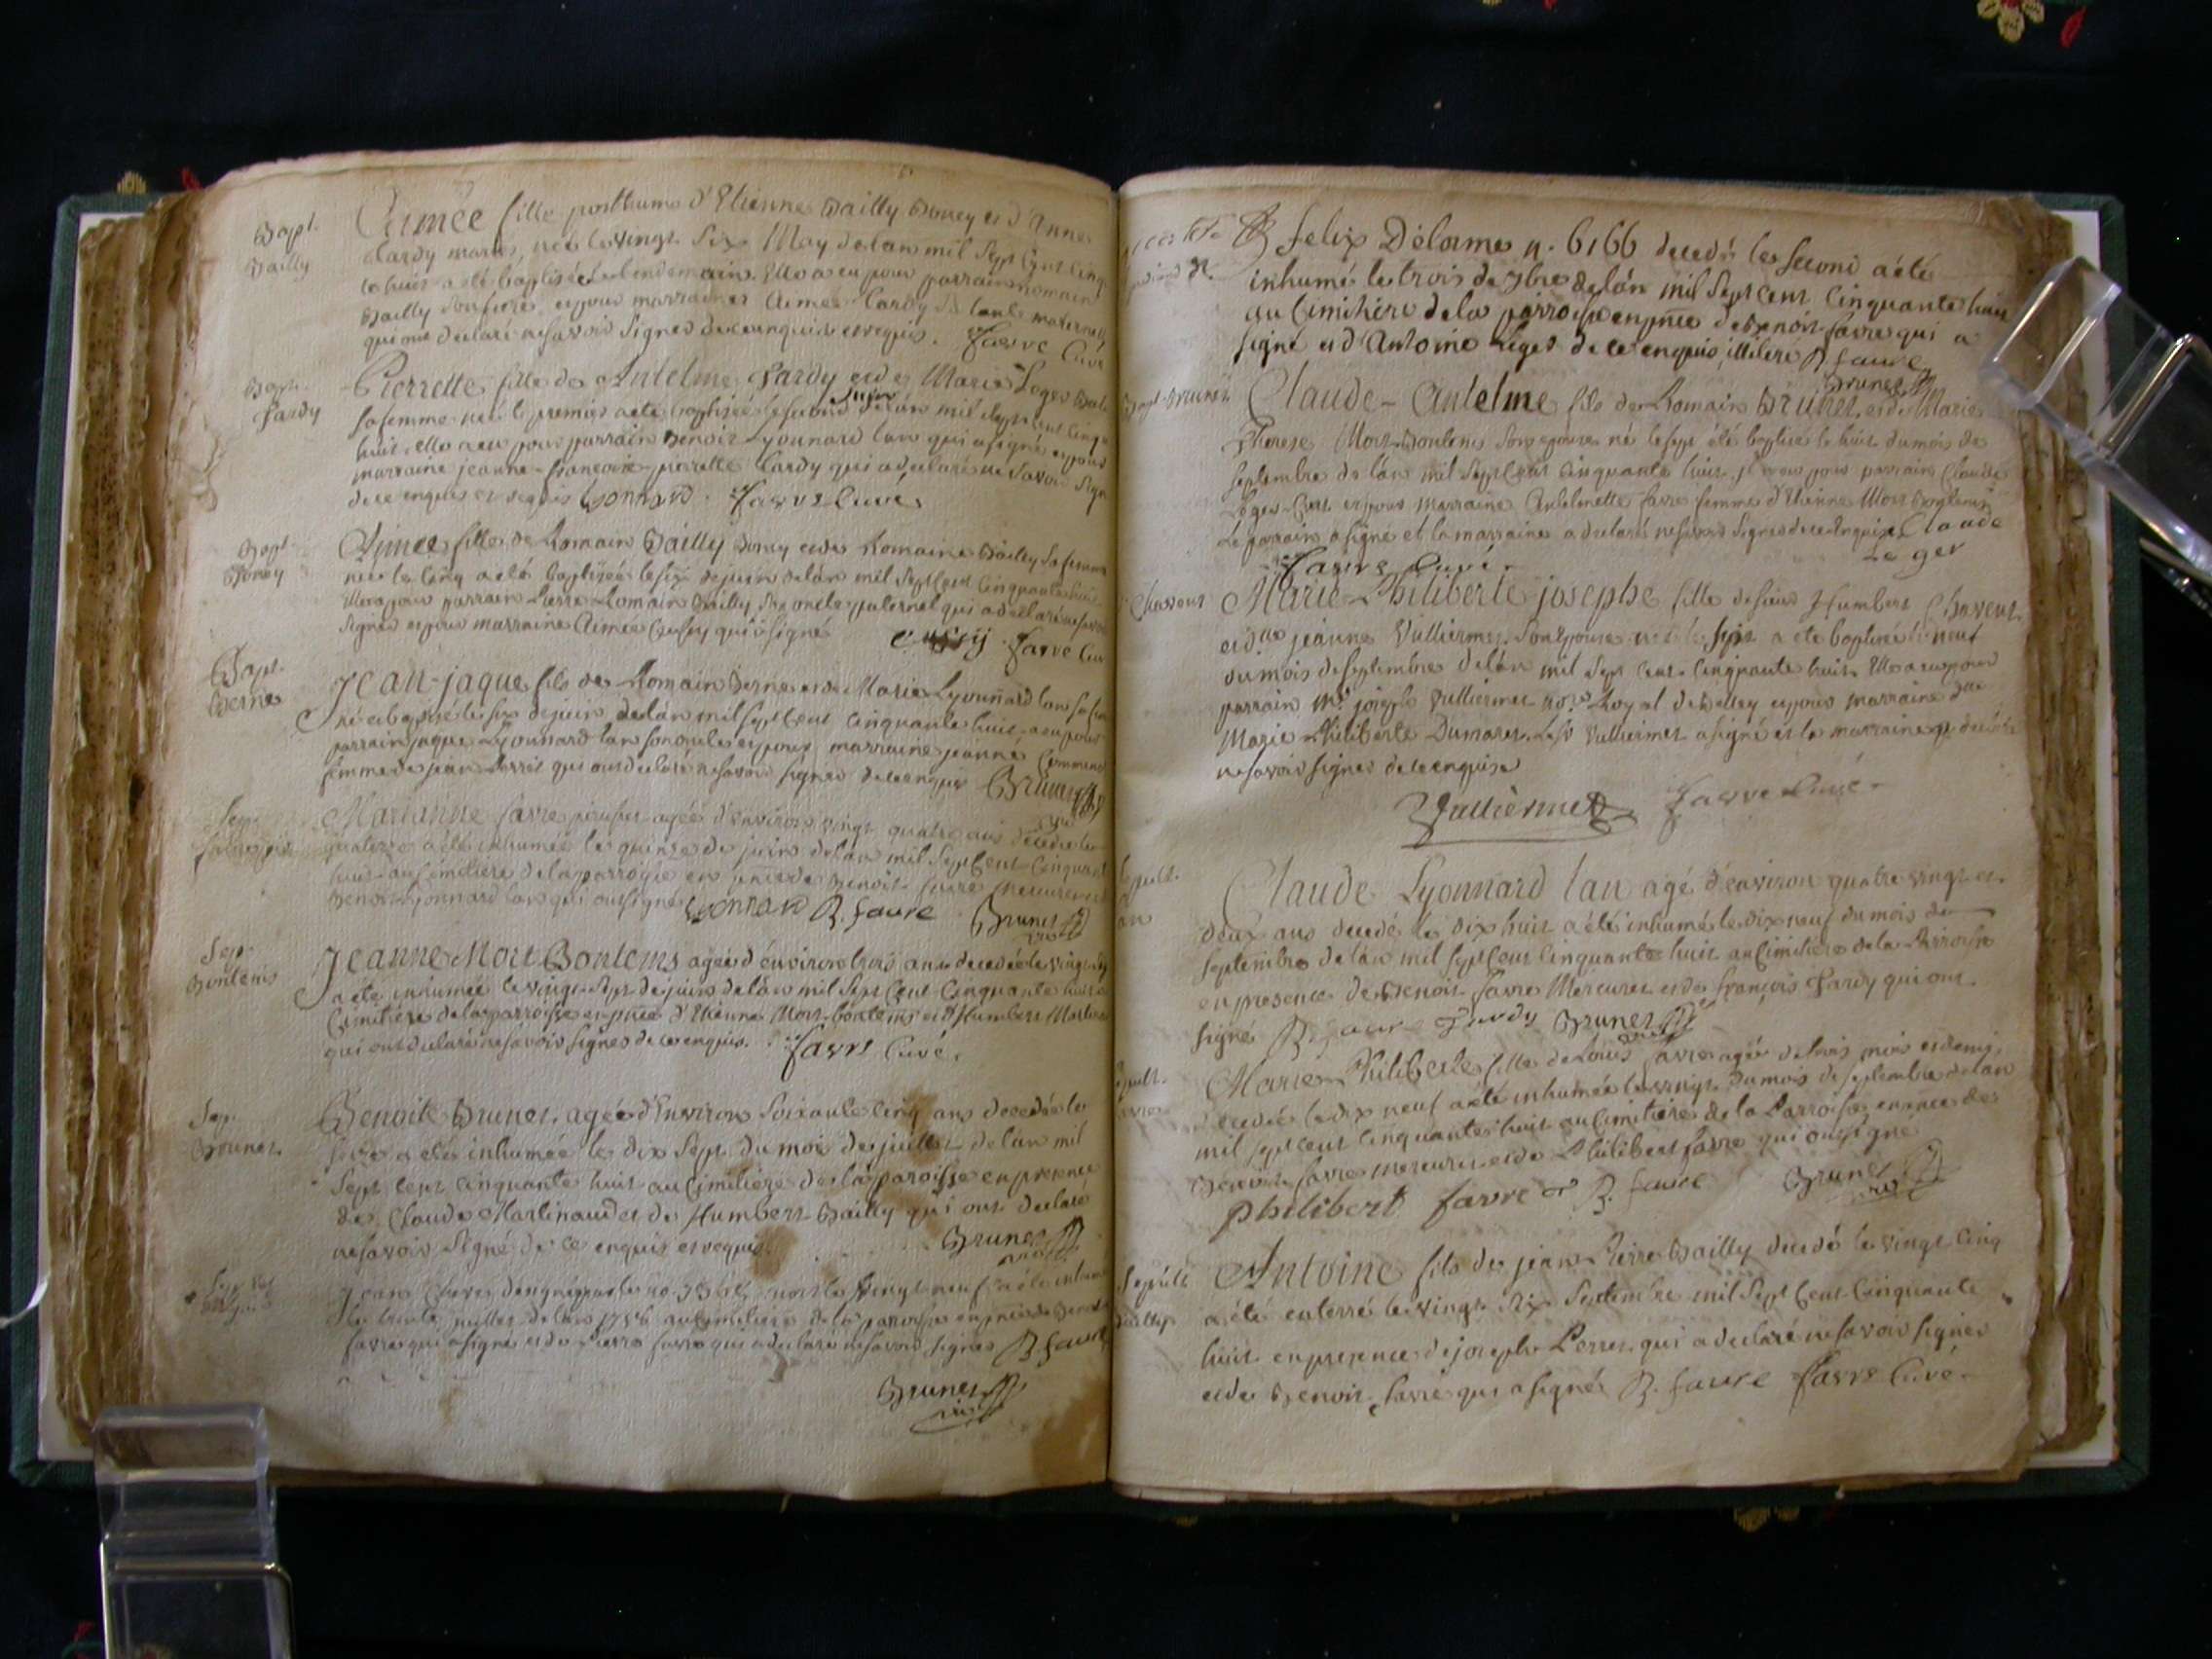 Bapt.
Bailly
Aimée fille posthume d'Etienne Bailly Borey et d'Anne
Tardy mariés, née le vingt six May de lan mil Sept Cent Cinq
te huit a été baptisée le lendemain. Elle a eu pour parrain Romain
Bailly son frere, et pour marraine Aimée Tardy sa tante maternelle
qui ont declaré ne savoir signer de ce enquis et requis. Favre Curé
Bapt.
Tardy
Pierrette fille de Antelme Tardy et de Marie Loges
sa femme née le premier a eté baptisée le second Juin de lán mil Sept Cent Cinq
huit, elle a eu pour parrain Benoit Lyonnard lan qui a signé et pour
marraine jeanne-francoise-pierrette Tardy qui a declaré ne savoir sign
de ce enquis et requis Lyonnard. Favre Curé.
Bapt
Borey
Aimée fille de Romain Bailly Borey et de Romaine Bailly sa femme
née le cinq a eté baptisée le six de juin de lán mil Sept Cent Cinquante huit
Elle a pour parrain Pierre Romain Bailly son oncle paternel qui a declaré ne savoir
signer et pour marraine Aimée Cussy qui a signé Cussy. Favre Cur
Bapt.
Berne
Jean-jaque fils de Romain Berne et de Marie Lyonnard lan sa fem
né et baptisé le six de juin de lán mil Sept Cent Cinquante huit. a eu pour
parrain jaque Lyonnard lan son oncle et pour marraine jeanne
femme de jean Perret qui ont declaré ne savoir signer de ce enquis Brunet
Sep.
Marianne favre agée d'environ vingt quatre ans decedée le
quatorze a été inhumée le quinze de juin de lán mil Sept Cent Cinquante
huit au Cimitiere de la parroisse en pnce de Benoit favre Mercuret
Benoit Lyonnard lan qui ont signé Lyonnard B. faure Brunet
Sep.
Bontems
Jeanne Mort Bontems agée d'environ trois ans decedée le vingt
a eté inhumée le vingt Sept de juin de lán mil Sept Cent Cinquante huit
Cimitiere de la parroisse en pnce d'Etienne Mort-bontems et d'Humbert
qui ont declaré ne savoir signer de ce enquis. Favre Curé.
Sep.
Brunet.
Benoite Brunet, agée d'Environ Soixante Cinq ans decedée le
seize a eté inhumée le dix Sept du moi de juillet de lán mil
Sept Cent Cinquante huit au Cimitiere de la paroisse en presence
de Claude Martinaud et de Humbert Bailly qui ont declaré
ne savoir Signé de ce enquis et requis. Brunet
Jean mort le vingt neuf a eté inhumé
le trente juillet de lan 1758 au Cimitiere de la parroisse en pnce de Benoit
favre qui a signé et de Pierre favre qui a declaré ne savoir signer B. faure
Brunet
felix Délorme n. 6166 decedé le second a été
inhumé le trois de 7bre de lán mil Sept Cent Cinquante huit
au Cimitiere de la parroisse en pnce de Benoit favre qui a
signé et d'Antoine Leger de ce enquis, illiteré B. faure
Brunet
Bapt. Brunet
Claude-Antelme fils de Romain Brunet, et de Marie
Therese Mort-Bontems son epouse né le sept été baptisé le huit du mois de
Septembre de lán mil Sept Cent Cinquante huit. jl a eu pour parrain Claude
Leger et pour Marraine Antelmette favre femme d'Etienne Mort Bontems
Le parrain a signé et la marraine a declaré ne savoir signer de ce enquise Claude
Favre Curé. Leger
Marie-Philiberte josephe fille de sieur Humbert Chavent
et dlle jeanne Vulliermet son epouse née le sept a eté baptisée le neuf
du mois de septembre de lán mil Sept Cent Cinquante huit. Elle a eu pour
parrain Mr joseph Vulliermet Royal de Belley et pour marraine dlle
Marie Philiberte Dumarest. Le Sr Vulliermet a signé et la marraine a declaré
ne savoir signer de ce enquise
Vulliermet Favre Curé.
Sepult.
lan
Claude Lyonnard lan agé d'environ quatre vingt et
deux ans decedé le dix huit a été inhumé le dix neuf du mois de
Septembre de lán mil Sept Cent Cinquante huit au Cimitiere de la Parroisse
en presence de Benoit favre Mercuret et de françois Tardy qui ont
signé B. faure Tardy Brunet
Sepult.
favre
Marie-Philiberte fille de Louis favre agée de trois mois et demi,
decedée le dix neuf a eté inhumée le vingt du mois de septembre de lan
mil sept cent cinquante huit au Cimitiere de la Parroisse en pnce de
Benoit favre mercuret et de Philibert favre qui ont signé
Philibert favre B. faure Brunet
Sepult
Bailly
Antoine fils de jean-Pierre Bailly decedé le vingt Cinq
a été enterré le vingt Six Septembre mil Sept Cent Cinquante
huit en presence de joseph Perret qui a declaré ne savoir signer
et de Benoit favre qui a signé B. faure Favre Curé.